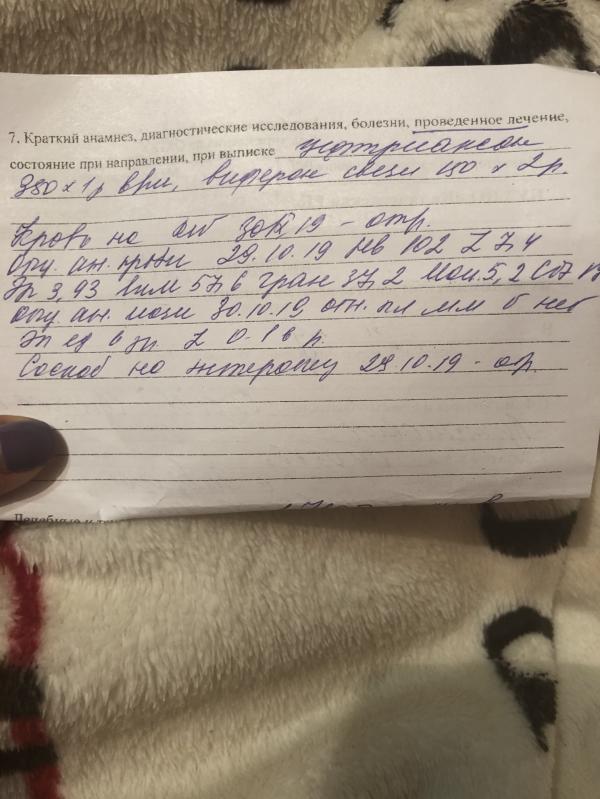 7. Краткий анамнез, диагностические исследования, болезни, проведенное лечение,
состояние при направлении, при выписке цефтриаксон
350 x 1 р в/м, виферон свечи 150 x 2 р.
Кровь на 19 - отр.
Общ. ан. крови 29.10.19 Hb 102 L 7,4
Эр 3,93 лим 57,6 гран 37,2 мон. 5,2 СОЭ
общ. ан. мочи 30.10.19, отн. пл мм б нет
эп ед в зр. L 0-1 в р.
Соскоб на энтеробиоз 29.10.19 - отр.